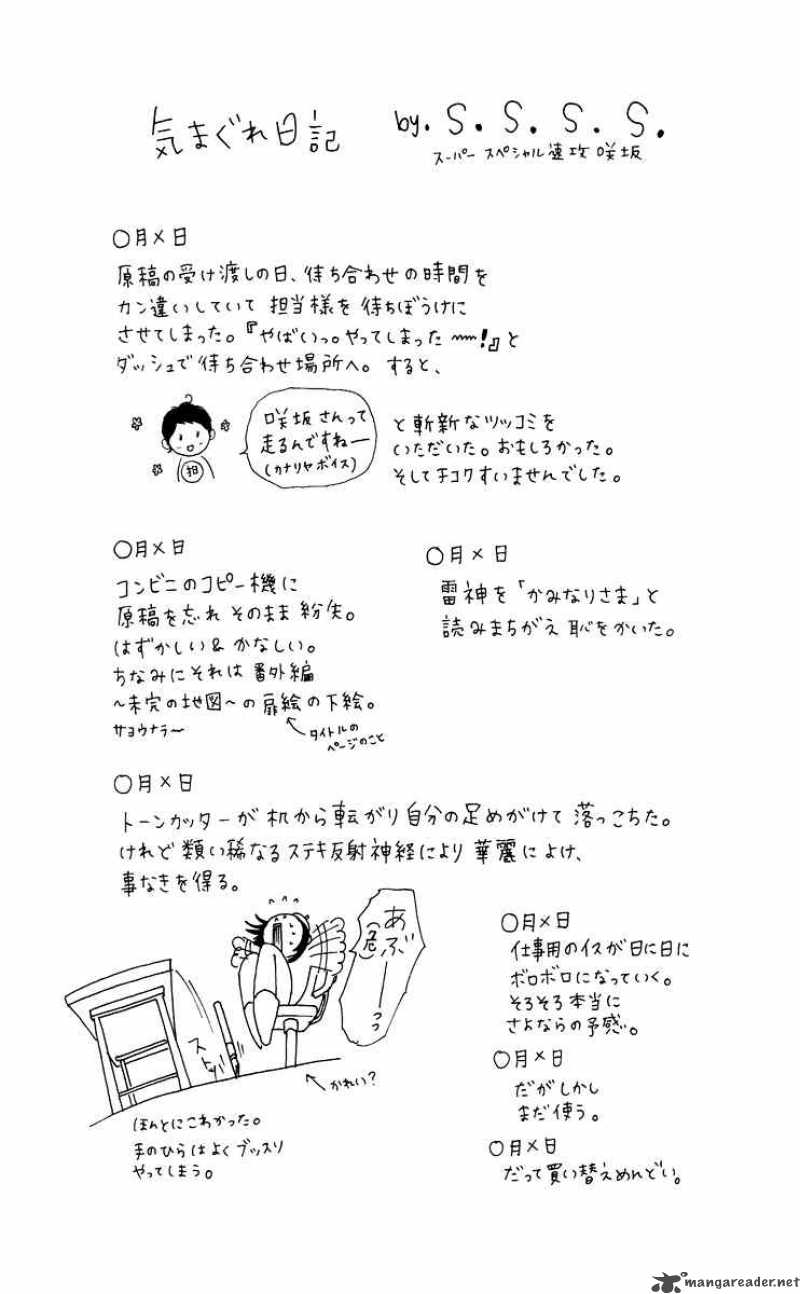 気まぐれ日記
by. S. S. S. S.
スーパー スペシャル 速攻 咲坂
〇月×日
原稿の受け渡しの日、待ち合わせの時間を
カン違いしていて 担当様を 待ちぼうけに
させてしまった。『やばいっ。やってしまった〰!』と
ダッシュで待ち合わせ場所へ。すると、
担
咲坂さんって
走るんですねー
(カナリヤボイス)
と斬新なツッコミを
いただいた。おもしろかった。
そしてチコクすいませんでした。
〇月×日
コンビニのコピー機に
原稿を忘れ そのまま 紛失。
はずかしい&かなしい。
ちなみにそれは 番外編
~未完の地図~の扉絵の下絵。
サヨウナラ〜
タイトルの
ページのこと
〇月×日
雷神を「かみなりさま」と
読みまちがえ 恥をかいた。
〇月×日
トーンカッターが 机から転がり自分の足めがけて 落っこちた。
けれど 類い稀なる ステキ反射神経により 華麗によけ、
事なきを得る。
あぶーっっ
(危)
ストッ
かれい?
ほんとにこわかった。
手のひらはよく ブッスリ
やってしまう。
〇月×日
仕事用のイスが日に日に
ボロボロになっていく。
そろそろ本当に
さよならの予感。
〇月×日
だがしかし
まだ使う。
〇月×日
だって買い替えめんどい。
mangareader.net